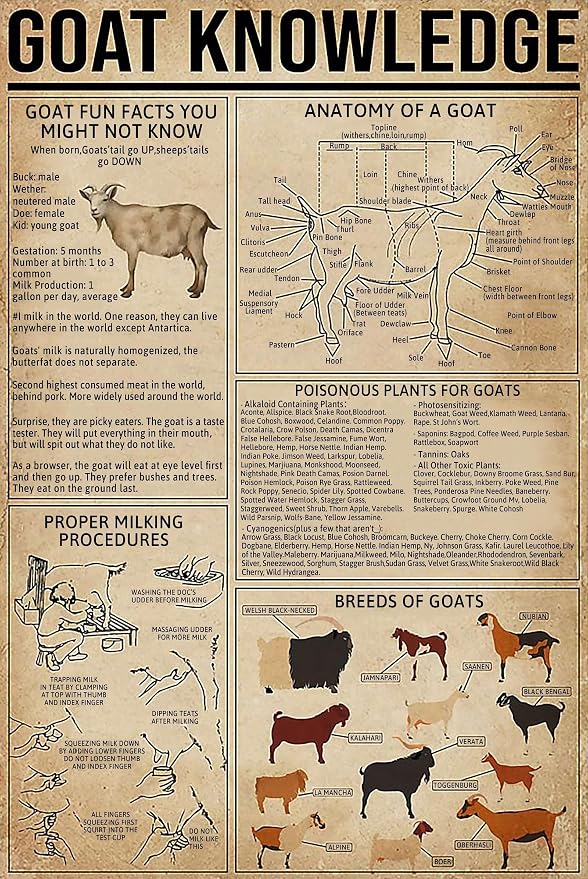 GOAT KNOWLEDGE
GOAT FUN FACTS YOU
MIGHT NOT KNOW
When born,Goats'tail go UP,sheeps'tails
go DOWN
Buck: male
Wether:
neutered male
Doe: female
Kid: young goat
Gestation: 5 months
Number at birth: 1 to 3
common
Milk Production: 1
gallon per day, average
#I milk in the world. One reason, they can live
anywhere in the world except Antartica.
Goats' milk is naturally homogenized, the
butterfat does not separate.
Second highest consumed meat in the world,
behind pork. More widely used around the world.
Surprise, they are picky eaters. The goat is a taste
tester. They will put everything in their mouth,
but will spit out what they do not like.
As a browser, the goat will eat at eye level first
and then go up. They prefer bushes and trees.
They eat on the ground last.
ANATOMY OF A GOAT
Topline
(withers,chine,loin,rump)
Rump
Back
Horn
Poll
Ear
Eye
Bridge
of Nose
Nose
Muzzle
Wattles Mouth
Dewlap
Throat
Heart girth
(measure behind front legs
all around)
Point of Shoulder
Brisket
Chest Floor
(width between front legs)
Point of Elbow
Knee
Cannon Bone
Toe
Hoof
Sole
Heel
Dewclaw
Milk Vein
Barrel
Ribs
Neck
Loin
Chine
Withers
(highest point of back)
Shoulder blade
Hip Bone
Thurl
Pin Bone
Thigh
Stifle
Flank
Fore Udder
Floor of Udder
(Between teats)
Trat
Oriface
Hoof
Pastern
Hock
Medial
Suspensory
Liament
Tendon
Rear udder
Escutcheon
Clitoris
Vulva
Anus
Tail head
Tail
POISONOUS PLANTS FOR GOATS
- Alkaloid Containing Plants:
Aconte, Allspice. Black Snake Root,Bloodroot.
Blue Cohosh, Boxwood, Celandine. Common Poppy.
Crotalaria, Crow Poison, Death Camas, Dicentra
False Hellebore. False Jessamine, Fume Wort,
Hellebore, Hemp, Horse Nettle. Indian Hemp.
Indian Poke. Jimson Weed, Larkspur, Lobelia,
Lupines, Marijuana, Monkshood, Moonseed,
Nightshade, Pink Death Camas, Poison Darnel.
Poison Hemlock, Poison Rye Grass, Rattleweed,
Rock Poppy, Senecio, Spider Lily. Spotted Cowbane.
Spotted Water Hemlock, Stagger Grass,
Staggerweed, Sweet Shrub, Thorn Apple, Varebells.
Wild Parsnip, Wolfs-Bane, Yellow Jessamine.
- Cyanogenics(plus a few that aren't_):
Arrow Grass, Black Locust, Blue Cohosh, Broomcarn, Buckeye. Cherry, Choke Cherry. Corn Cockle.
Dogbane, Elderberry, Hemp, Horse Nettle. Indian Hemp, Ny, Johnson Grass, Kafir. Laurel Leucothoe, Lily
of the Valley,Maleberry. Marijuana,Milkweed. Milo, Nightshade,Oleander,Rhododendron, Sevenbark,
Silver, Sneezewood, Sorghum, Stagger Brush,Sudan Grass, Velvet Grass,White Snakeroot,Wild Black
Cherry, Wild Hydrangea.
- Photosensitizing:
Buckwheat, Goat Weed,Klamath Weed, Lantana.
Rape. St John's Wort.
- Saponins: Bagpod, Coffee Weed, Purple Sesban.
Rattlebox, Soapwort
- Tannins: Oaks
- All Other Toxic Plants:
Clover, Cocklebur, Downy Broome Grass, Sand Bur,
Squirrel Tail Grass, Inkberry. Poke Weed, Pine
Trees, Ponderosa Pine Needles, Baneberry,
Buttercups, Crowfoot Ground My. Lobelia,
Snakeberry. Spurge. White Cohosh
PROPER MILKING
PROCEDURES
WASHING THE DOC'S
UDDER BEFORE MILKING
MASSAGING UDDER
FOR MORE MILK
TRAPPING MILK
IN TEAT BY CLAMPING
AT TOP WITH THUMB
AND INDEX FINGER
DIPPING TEATS
AFTER MILKING
SQUEEZING MILK DOWN
BY ADDING LOWER FINGERS
DO NOT LOOSEN THUMB
AND INDEX FINGER
ALL FINGERS
SQUEEZING FIRST
SQUIRT INTO THE
TEST CUP
DO NOT
MILK LIKE
THIS
BREEDS OF GOATS
WELSH BLACK-NECKED
JAMNAPARI
NUBIAN
SAANEN
BLACK BENGAL
KALAHARI
VERATA
LA MANCHA
TOGGENBURG
ALPINE
BOER
OBERHASLI